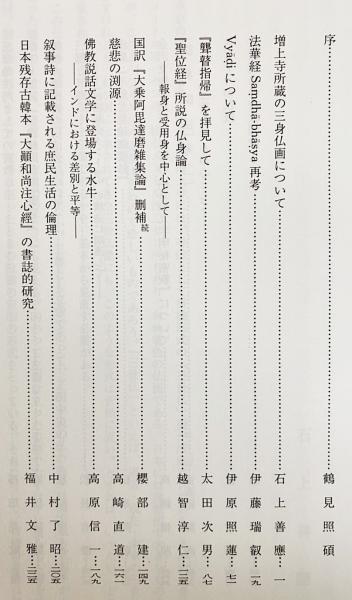 序……鶴見照碩
増上寺所蔵の三身仏画について……石上善應…一
法華経 Saṃdhā-bhāṣya 再考……伊藤瑞叡…一九
Vyāḍi について……伊原照蓮…七一
『聾瞽指帰』を拝見して……太田次男…八七
『聖位経』所説の仏身論……越智淳仁…一二五
――報身と受用身を中心として――
国訳『大乗阿毘達磨雑集論』刪補 続……櫻部建…一四九
慈悲の渕源……高崎直道…一六一
佛教説話文学に登場する水牛……高原信一…一八九
――インドにおける差別と平等――
叙事詩に記載される庶民生活の倫理……中村了昭…二〇五
日本残存古韓本『大顚和尚注心經』の書誌的研究……福井文雅…二三五